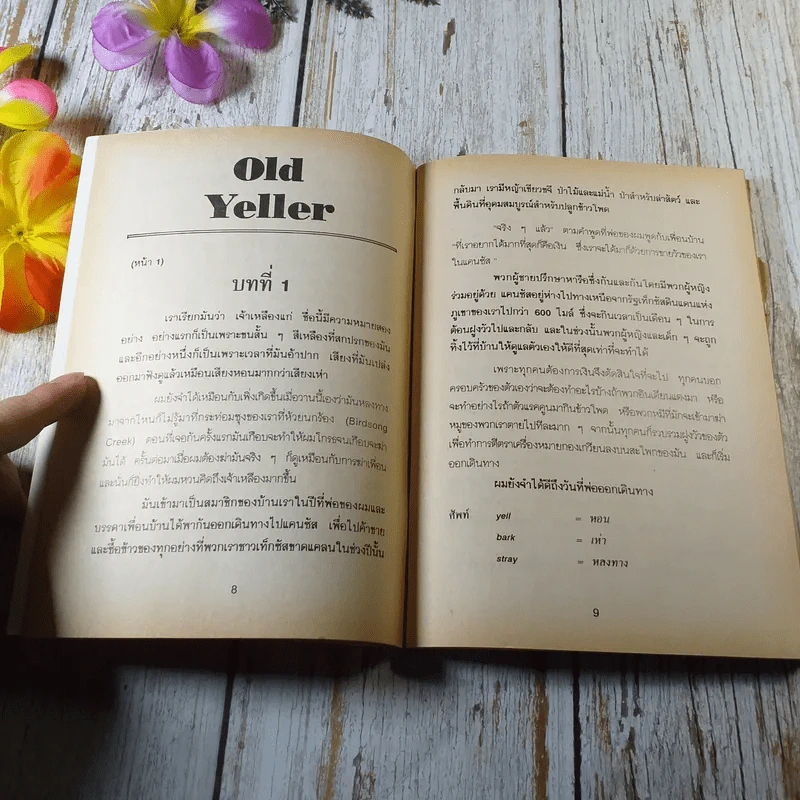 Old
Yeller
(หน้า 1)
บทที่ 1
เราเรียกมันว่า เจ้าเหลืองแก่ ชื่อนี้มีความหมายสอง
อย่าง อย่างแรกก็เป็นเพราะขนสั้น ๆ สีเหลืองที่สกปรกของมัน
และอีกอย่างหนึ่งก็เป็นเพราะเวลาที่มันอ้าปาก เสียงที่มันเปล่ง
ออกมาฟังดูแล้วเหมือนเสียงหอนมากกว่าเสียงเห่า
ผมยังจำได้เหมือนกับเพิ่งเกิดขึ้นเมื่อวานนี้เองว่ามันหลงทาง
มาจากไหนก็ไม่รู้มาที่กระท่อมซุงของเราที่ห้วยนกร้อง (Birdsong
Creek) ตอนที่เจอกันครั้งแรกมันเกือบจะทำให้ผมโกรธจนเกือบจะฆ่า
มันได้ ครั้นต่อมาเมื่อผมต้องฆ่ามันจริง ๆ ก็ดูเหมือนกับการฆ่าเพื่อน
และนั่นก็ยิ่งทำให้ผมหวนคิดถึงเจ้าเหลืองมากขึ้น
มันเข้ามาเป็นสมาชิกของบ้านเราในปีที่พ่อของผมและ
บรรดาเพื่อนบ้านได้พากันออกเดินทางไปแคนซัส เพื่อไปค้าขาย
และซื้อข้าวของทุกอย่างที่พวกเราชาวเท็กซัสขาดแคลนในช่วงปีนั้น
8
กลับมา เรามีหญ้าเขียวขจี ป่าไม้และแม่น้ำ ป่าสำหรับล่าสัตว์ และ
พื้นดินที่อุดมสมบูรณ์สำหรับปลูกข้าวโพด
"จริง ๆ แล้ว" ตามคำพูดที่พ่อของผมพูดกับเพื่อนบ้าน
"ที่เราอยากได้มากที่สุดก็คือเงิน ซึ่งเราจะได้มาก็ด้วยการขายวัวของเรา
ในแคนซัส "
พวกผู้ชายปรึกษาหารือซึ่งกันและกันโดยมีพวกผู้หญิง
ร่วมอยู่ด้วย แคนซัสอยู่ห่างไปทางเหนือจากรัฐเท็กซัสดินแดนแห่ง
ภูเขาของเราไปกว่า 600 ไมล์ ซึ่งจะกินเวลาเป็นเดือน ๆ ในการ
ต้อนฝูงวัวไปและกลับ และในช่วงนั้นพวกผู้หญิงและเด็ก ๆ จะถูก
ทิ้งไว้ที่บ้านให้ดูแลตัวเองให้ดีที่สุดเท่าที่จะทำได้
เพราะทุกคนต้องการเงินจึงตัดสินใจที่จะไป ทุกคนบอก
ครอบครัวของตัวเองว่าจะต้องทำอะไรบ้างถ้าพวกอินเดียนแดงมา หรือ
จะทำอย่างไรถ้าตัวแรคคูนมากินข้าวโพด หรือพวกหมีที่มักจะเข้ามาฆ่า
หมูของพวกเราตายไปทีละมาก ๆ จากนั้นทุกคนก็รวบรวมฝูงวัวของตัว
เพื่อทำการตีตราเครื่องหมายกองเกวียนลงบนสะโพกของมัน และก็เริ่ม
ออกเดินทาง
ผมยังจำได้ดีถึงวันที่พ่อออกเดินทาง
ศัพท์ yell = หอน
bark = เห่า
stray = หลงทาง
9